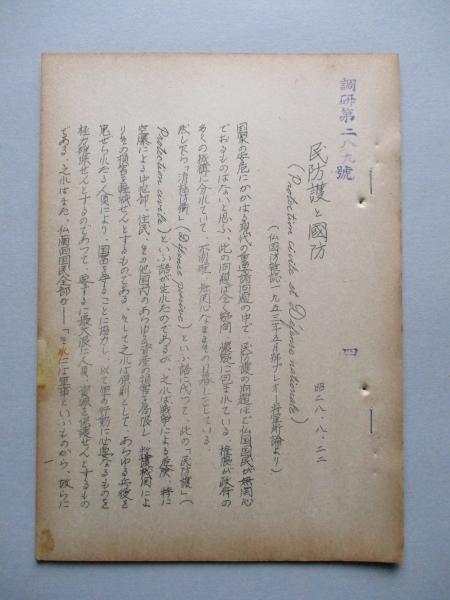 調研第二八九號
民防護と國防
(Protection civile et Défense nationale)
四
昭二八・八・二二
(仏国防雑誌一九五三年五月号 将軍所論より)
国家の安危にかかはる現代の重要諸問題の中で 民防護の問題ほど仏国国民が無関心
でおるものはないと思ふ、此の問題は全く疑問、懐疑に包まれている、権限が政府の
多くの機構に分れていて、不明瞭、無関心なままその日暮しをしている。
「消極防衛」(Défense passive)といふ語に代つて、此の「民防護」(
Protection civile)といふ語が生れたのであるが、之れは戦争による危険、特に
空襲による中心部、住民、その他国内のあらゆる資産の損害を局限し、救護機関によ
りその損害を軽減せんとするものである。そして之れは原則として、あらゆる兵役を
免ぜられたる人員により、国富を守ることに協力し、以て軍の行動に必要なるものを
極力確保せんとするのであつて、要するに最大限に人員、資源を保護せんとするもの
である。之れはまた、仏蘭西国民全部が――「それには軍事といふものから、故らに